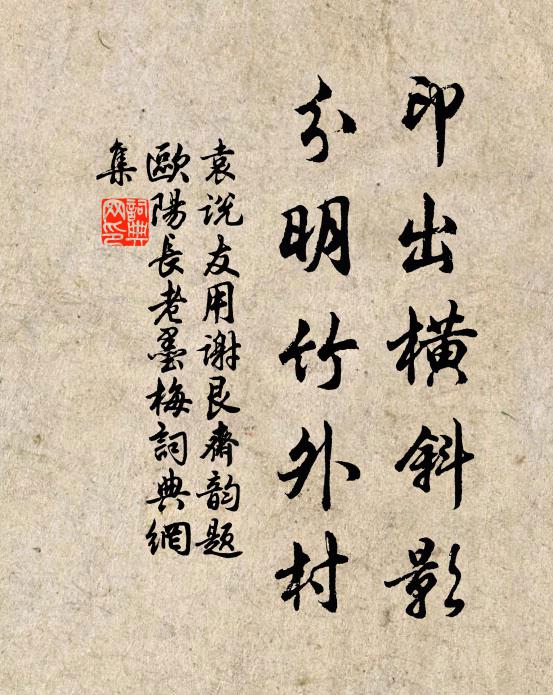 印出橫斜影
分明竹外村
袁说友用谢艮齋韵题
歐陽長老墨梅詞典網
集
詞典
网印